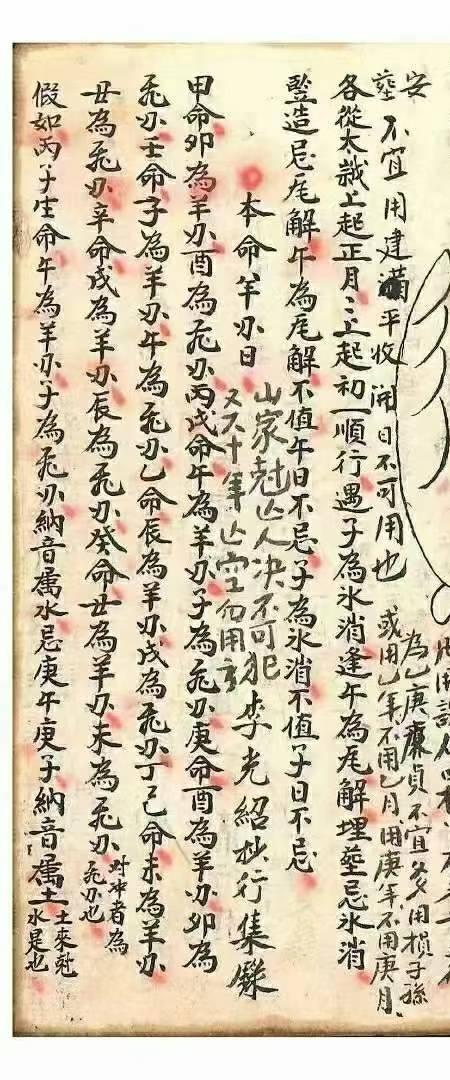 安
葬不宜用建滿平收閉日不可用也
為乙庚廉貞不宜多用損子孫
或用乙年不用乙月用庚年不用庚月
各從太歲上起正月〻上起初一順行遇子為氷消逢午為瓦解埋葬忌氷消
豎造忌瓦解午為瓦解不值午日不忌子為氷消不值子日不忌
本命羊刃日
山家尅亡人決不可犯
又六十年亡空勿用
李光紹抄行集錄
甲命卯為羊刃酉為飛刃丙戊命午為羊刃子為飛刃庚命酉為羊刃卯為
飛刃壬命子為羊刃午為飛刃乙命辰為羊刃戌為飛刃丁己命未為羊刃
丑為飛刃辛命戌為羊刃辰為飛刃癸命丑為羊刃未為飛刃
對冲者為
飛刃也
假如丙子生命午為羊刃子為飛刃納音屬水忌庚午庚子納音屬土
土來尅
水是也